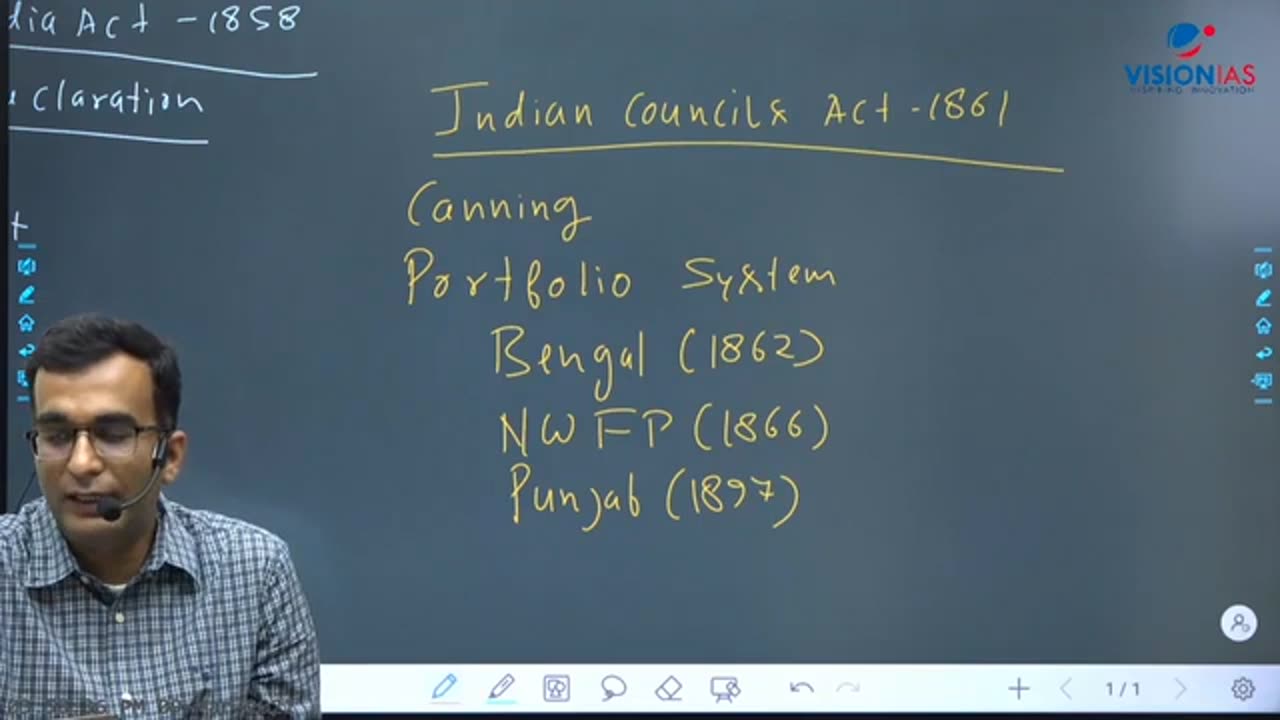 dia Act - 1858
claration
Indian Councils Act - 1861
Canning
Portfolio System
Bengal (1862)
NWFP (1866)
Punjab (1897)
VISIONIAS
INSPIRING INNOVATION
1/1